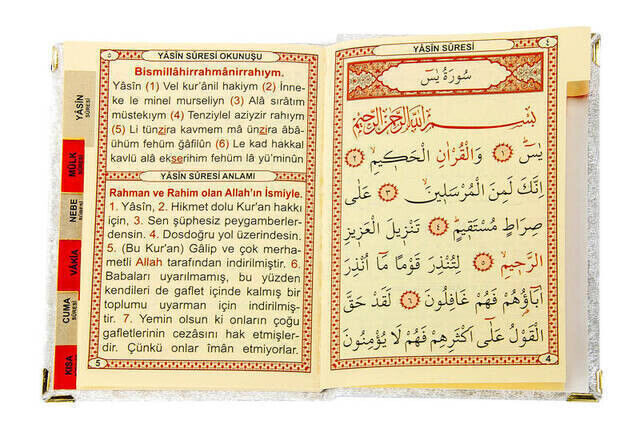 ٥ YÂSİN SÛRESİ OKUNUŞU
Bismillâhirrahmânirrahıym.
Yâsîn (1) Vel kur'ânil hakiym (2) İnne-
ke le minel murseliyn (3) Alâ sıratım
müstekıym (4) Tenziylel aziyzir rahıym
(5) Li tünzira kavmem mâ ünzira âbâ-
ühüm fehüm ğâfilûn (6) Le kad hakkal
kavlü alâ ekserihim fehüm lâ yü'minûn
YÂSİN SÛRESİ ANLAMI
Rahman ve Rahim olan Allah'ın İsmiyle.
1. Yâsîn, 2. Hikmet dolu Kur'an hakkı
için, 3. Sen şüphesiz peygamberler-
densin. 4. Dosdoğru yol üzerindesin.
5. (Bu Kur'an) Gâlip ve çok merha-
metli Allah tarafından indirilmiştir. 6.
Babaları uyarılmamış, bu yüzden
kendileri de gaflet içinde kalmış bir
toplumu uyarman için indirilmiş-
tir. 7. Yemin olsun ki onların çoğu
gafletlerinin cezâsını hak etmişler-
dir. Çünkü onlar îmân etmiyorlar.
5
YÂSİN SÛRESİ
MÜLK SÛRESİ
NEBE SÛRESİ
VÂKIA SÛRESİ
CUMA SÛRESİ
KISA
YÂSİN SÛRESİ ٤
سُورَةُ يٰسٓ
بِسْمِ اللّٰهِ الرَّحْمٰنِ الرَّحِيمِ
يٰسٓ ١ وَالْقُرْاٰنِ الْحَكِيمِ ٢
اِنَّكَ لَمِنَ الْمُرْسَلِينَ ٣ عَلٰى
صِرَاطٍ مُسْتَقِيمٍ ٤ تَنْزِيلَ الْعَزِيزِ
الرَّحِيمِ ٥ لِتُنْذِرَ قَوْمًا مَٓا اُنْذِرَ
اٰبَٓاؤُ۬هُمْ فَهُمْ غَافِلُونَ ٦ لَقَدْ حَقَّ
الْقَوْلُ عَلٰٓى اَكْثَرِهِمْ فَهُمْ لَا يُؤْمِنُونَ
4